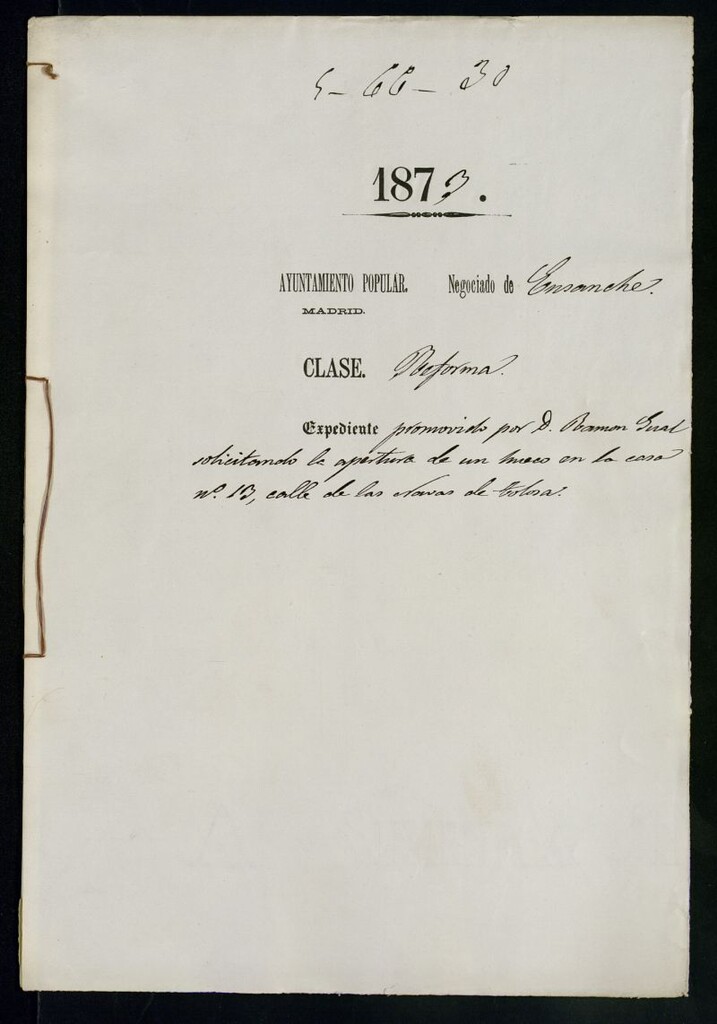 5-66-30
1873.
AYUNTAMIENTO POPULAR. Negociado de Ensanche.
MADRID.
CLASE. Reforma.
Expediente promovido por D. Ramon Gual
solicitando la apertura de un hueco en la casa
nº. 13, calle de las Navas de Tolosa.